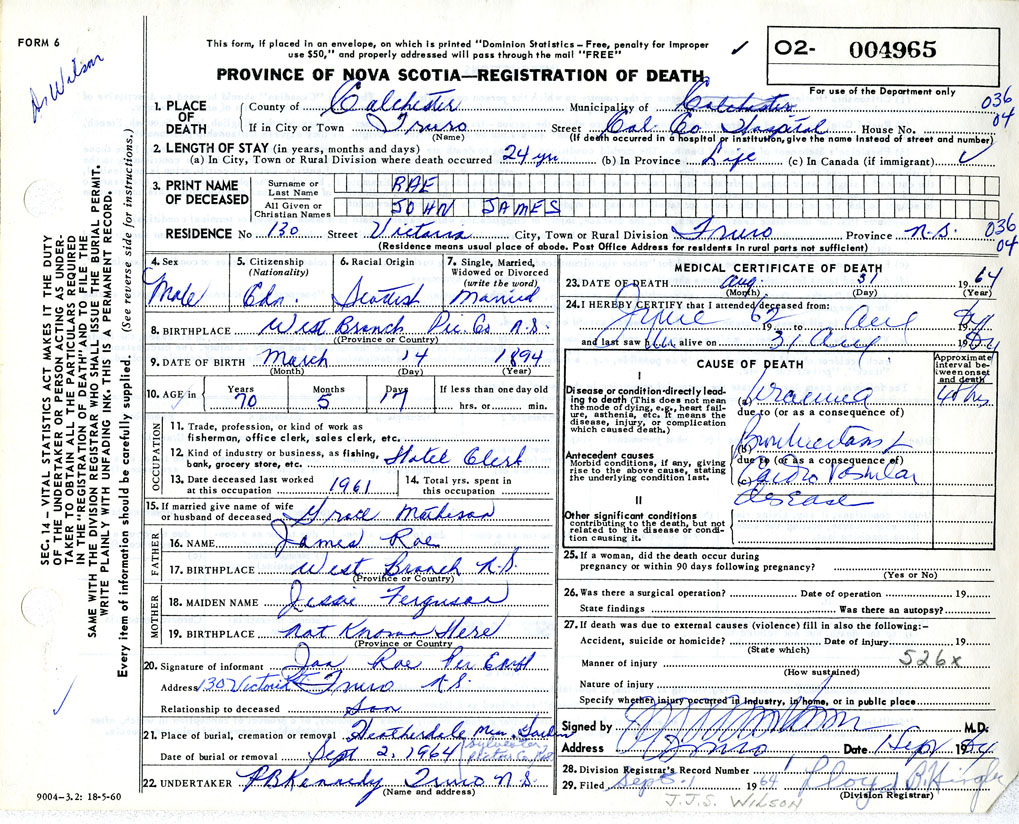 FORM 6
Dr Wilson
This form, if placed in an envelope, on which is printed "Dominion Statistics – Free, penalty for improper
use $50," and properly addressed will pass through the mail "FREE"
✓
O2- 004965
For use of the Department only
PROVINCE OF NOVA SCOTIA—REGISTRATION OF DEATH
036
04
1. PLACE OF DEATH
County of Colchester Municipality of Colchester
If in City or Town Truro Street Col. Co. Hospital House No.
(Name) (If death occurred in a hospital or institution, give the name instead of street and number)
2. LENGTH OF STAY (in years, months and days)
(a) In City, Town or Rural Division where death occurred 24 yrs (b) In Province Life (c) In Canada (if immigrant)
3. PRINT NAME OF DECEASED
Surname or Last Name RAE
All Given or Christian Names JOHN JAMES
RESIDENCE No 130 Street Victoria City, Town or Rural Division Truro Province N.S.
036
04
(Residence means usual place of abode. Post Office Address for residents in rural parts not sufficient)
4. Sex
Male
5. Citizenship
(Nationality)
Cdn.
6. Racial Origin
Scottish
7. Single, Married, Widowed or Divorced
(write the word)
Married
8. BIRTHPLACE West Branch Pic. Co N.S.
(Province or Country)
9. DATE OF BIRTH March 14 1894
(Month) (Day) (Year)
10. AGE in
Years 70
Months 5
Days 17
If less than one day old
hrs. or min.
OCCUPATION
11. Trade, profession, or kind of work as
fisherman, office clerk, sales clerk, etc.
12. Kind of industry or business, as fishing,
bank, grocery store, etc. Hotel Clerk
13. Date deceased last worked
at this occupation 1961
14. Total yrs. spent in
this occupation
15. If married give name of wife
or husband of deceased Grace Matheson
FATHER
16. NAME James Rae
17. BIRTHPLACE West Branch N.S.
(Province or Country)
MOTHER
18. MAIDEN NAME Jessie Ferguson
19. BIRTHPLACE Not Known Here
(Province or Country)
20. Signature of informant Jas Rae Per
Address 130 Victoria St Truro N.S.
Relationship to deceased Son
21. Place of burial, cremation or removal Heatherdale Mem. Garden
Date of burial or removal Sept 2, 1964
Sylvester,
22. UNDERTAKER P B Kennedy Truro N.S.
(Name and address)
MEDICAL CERTIFICATE OF DEATH
23. DATE OF DEATH Aug. 31 1964
(Month) (Day) (Year)
24. I HEREBY CERTIFY that I attended deceased from:
June 62 19 to Aug 19 64
and last saw him alive on 31 Aug 19 64
CAUSE OF DEATH
Approximate interval between onset and death
I
Disease or condition-directly leading to death (This does not mean the mode of dying, e.g., heart failure, asthenia, etc. It means the disease, injury, or complication which caused death.)
(a) Uraemia 48 hrs
due to (or as a consequence of)
Antecedent causes
Morbid conditions, if any, giving rise to the above cause, stating the underlying condition last.
(b) Bronchiectasis &
due to (or as a consequence of)
(c) Cardio Vascular
disease
II
Other significant conditions
contributing to the death, but not related to the disease or condition causing it.
25. If a woman, did the death occur during
pregnancy or within 90 days following pregnancy?
(Yes or No)
26. Was there a surgical operation? Date of operation 19
State findings Was there an autopsy?
27. If death was due to external causes (violence) fill in also the following:-
Accident, suicide or homicide? Date of injury 19
(State which)
526x
Manner of injury
(How sustained)
Nature of injury
Specify whether injury occurred in industry, in home, or in public place
Signed by M.D.
Address Truro Date 1 Sept 1964
28. Division Registrar's Record Number
29. Filed Sept. 1 1964 Lloyd B.
(Division Registrar)
J.J.S. WILSON
9004-3.2: 18-5-60
SEC. 14 – VITAL STATISTICS ACT MAKES IT THE DUTY
OF THE UNDERTAKER OR PERSON ACTING AS UNDER-
TAKER TO OBTAIN ALL THE PARTICULARS REQUIRED
IN THE "REGISTRATION OF DEATH" AND TO FILE THE
SAME WITH THE DIVISION REGISTRAR WHO SHALL ISSUE THE BURIAL PERMIT.
WRITE PLAINLY WITH UNFADING INK. THIS IS A PERMANENT RECORD.
Every item of information should be carefully supplied. (See reverse side for instructions.)